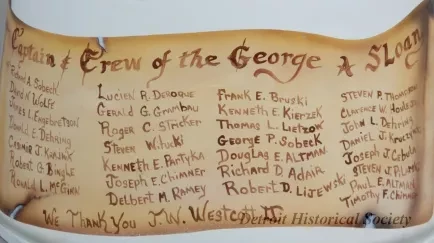 Captain & Crew of the George A Sloan
Richard A Sobeck
David N Wolff
James L Engbretson
Donald E Dehring
Cosmer J Kanjak
Robert G Bingle
Ronald L McGinn
Lucien R Deroque
Gerald G Grambau
Roger C Stricker
Steven Wiluki
Kenneth E Partyka
Joseph E Chimner
Delbert M. Ramey
Frank E. Bruski
Kenneth E Kierzek
Thomas L Lietzow
George P Sobeck
Douglas E Altman
Richard D Adair
Robert D. Lijewski
Steven P Thomorow
Clarence W
John L Dehring
Daniel J
Joseph J Cebula
Steven J P
Paul E Altman
Timothy F Chimner
We Thank You J.W. Westcott II
Detroit Historical Society